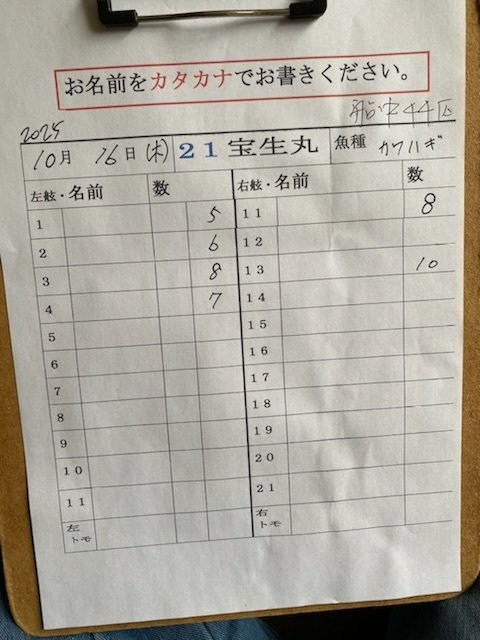 お名前をカタカナでお書きください。
船中44匹
2025
10月 16日(木) 21宝生丸 魚種 カワハギ
左舷・名前 数 右舷・名前 数
1 5 11 8
2 6 12
3 8 13 10
4 7 14
5 15
6 16
7 17
8 18
9 19
10 20
11 21
左トモ 右トモ